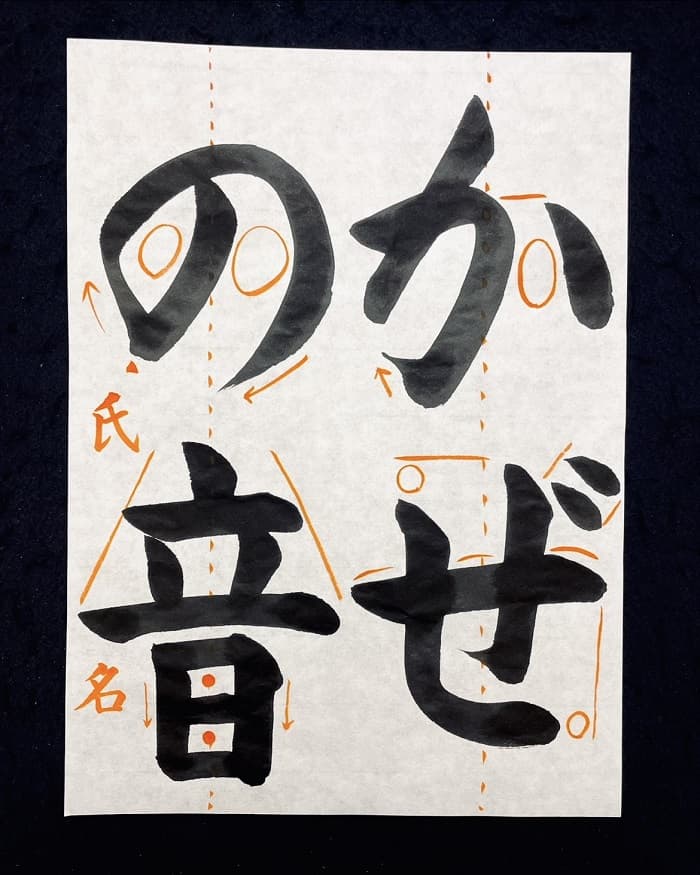 かぜ
の音
氏名